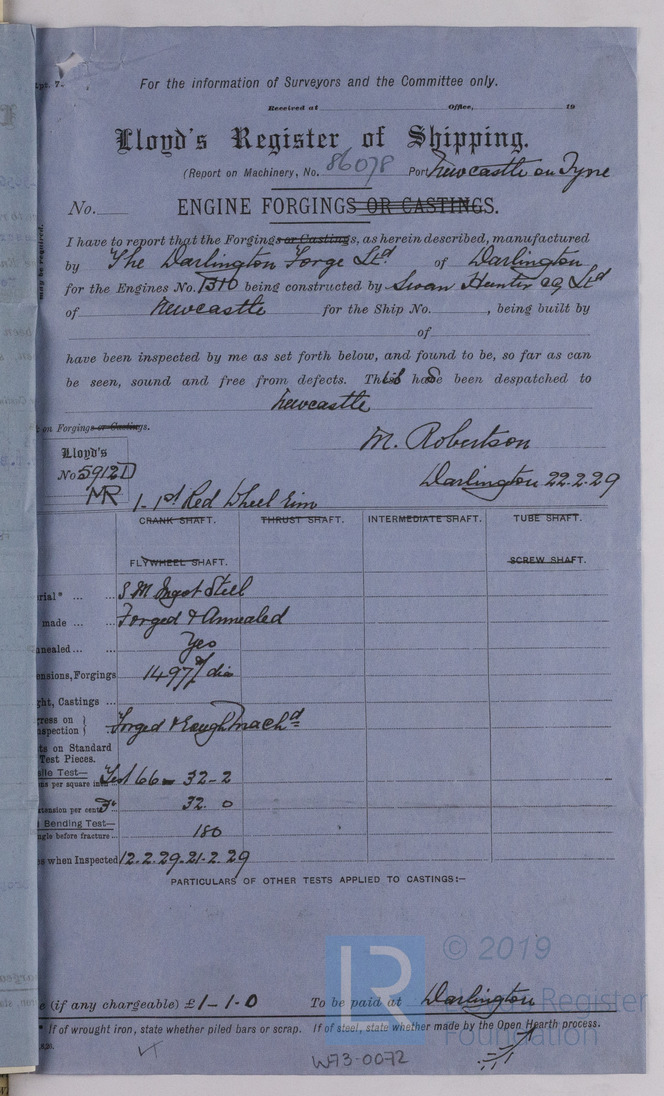 Rpt. 7.
For the information of Surveyors and the Committee only.
Received at Office, 19
Lloyd's Register of Shipping.
(Report on Machinery, No. 86078 Port Newcastle on Tyne
No.
ENGINE FORGINGS OR CASTINGS.
I have to report that the Forgings or Castings, as herein described, manufactured
by The Darlington Forge Ltd. of Darlington
for the Engines No. 1310 being constructed by Swan Hunter Ltd
of Newcastle for the Ship No. , being built by
of
have been inspected by me as set forth below, and found to be, so far as can
be seen, sound and free from defects. This has been despatched to
Newcastle
on Forgings or Castings.
M. Robertson
Lloyd's
No 5912D
MR
Darlington 22.2.29
1 - 1st Red Wheel Rim
CRANK SHAFT. THRUST SHAFT. INTERMEDIATE SHAFT. TUBE SHAFT.
FLYWHEEL SHAFT. SCREW SHAFT.
rial* ... ... S M Ingot Steel
made ... ... Forged & Annealed
nnealed... ... Yes
ensions, Forgings 1497 m/m dia
ht, Castings ...
gress on
nspection Forged & Rough Mach'd
ts on Standard
Test Pieces.
sile Test—
ns per square inch Test 66 - 32-2
xtension per cent 32.0
Bending Test—
ngle before fracture... 180
e when Inspected 12.2.29. 21.2.29
PARTICULARS OF OTHER TESTS APPLIED TO CASTINGS:—
© 2019
Register
Foundation
LR
e (if any chargeable) £1-1-0 To be paid at Darlington
* If of wrought iron, state whether piled bars or scrap. If of steel, state whether made by the Open Hearth process.
W73-0072